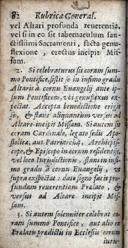 82 Rubrica General.
vel Altari profunda reverentia,
vel si in eo sit tabernaculum san-
ctissimi Sacramenti, facta genu-
flexione, erectus incipit Mis-
sam.
2. Si celebraturus sit coram sum-
mo Pontifice, sistit se in infimo gradu
Altaris à cornu Evangelij ante ip-
sum Pontificem, ubi genuflexus ex-
pectat. Accepta benedictione erigit
se, & stans aliquantulum versus ad
Altare incipit Missam. Si autem sit
coram Cardinale, legato Sedis Apo-
stolicæ, aut Patriarcha, Archiepis-
copo, & Episcopo in eorum residentijs,
vel loco Iurisdictionis, stans in infimo
gradu à cornu Evangelij, ut
supra expectat: dato signo facit pro-
fundam reverentiam Prælato, &
versus ad Altare incipit Mis-
sam.
3. Si autem solemniter celebrat co-
ram summo Pontifice, aut alio ex
Prælatis prædictis in Ecclesijs eorum